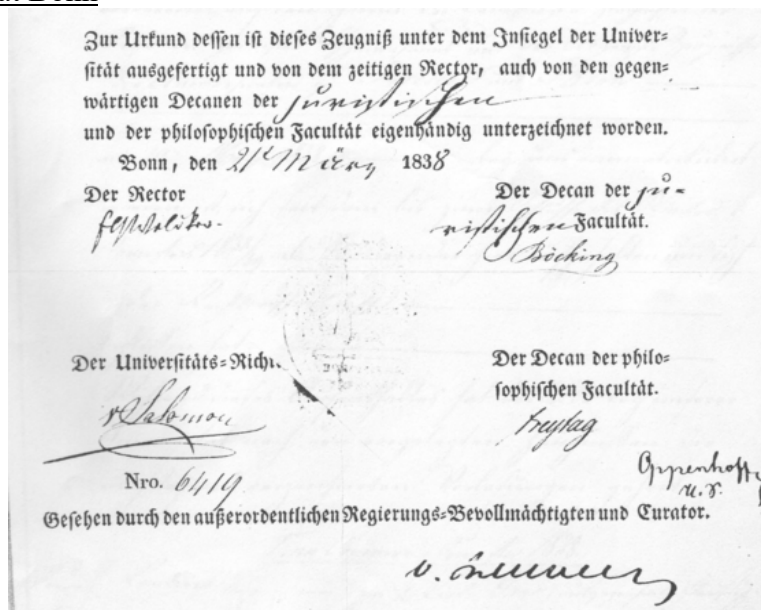 Zur Urkund dessen ist dieses Zeugniß unter dem Insiegel der Univer=
sität ausgefertigt und von dem zeitigen Rector, auch von den gegen=
wärtigen Decanen der juristischen
und der philosophischen Facultät eigenhändig unterzeichnet worden.
Bonn, den 21t März 1838
Der Rector
Der Decan der ju=
ristischen Facultät.
Böcking
Der Universitäts=Richt
v Salomon
Der Decan der philo=
sophischen Facultät.
Freytag
Nro. 6419
Oppenhoff
U. S.
Gesehen durch den außerordentlichen Regierungs=Bevollmächtigten und Curator.